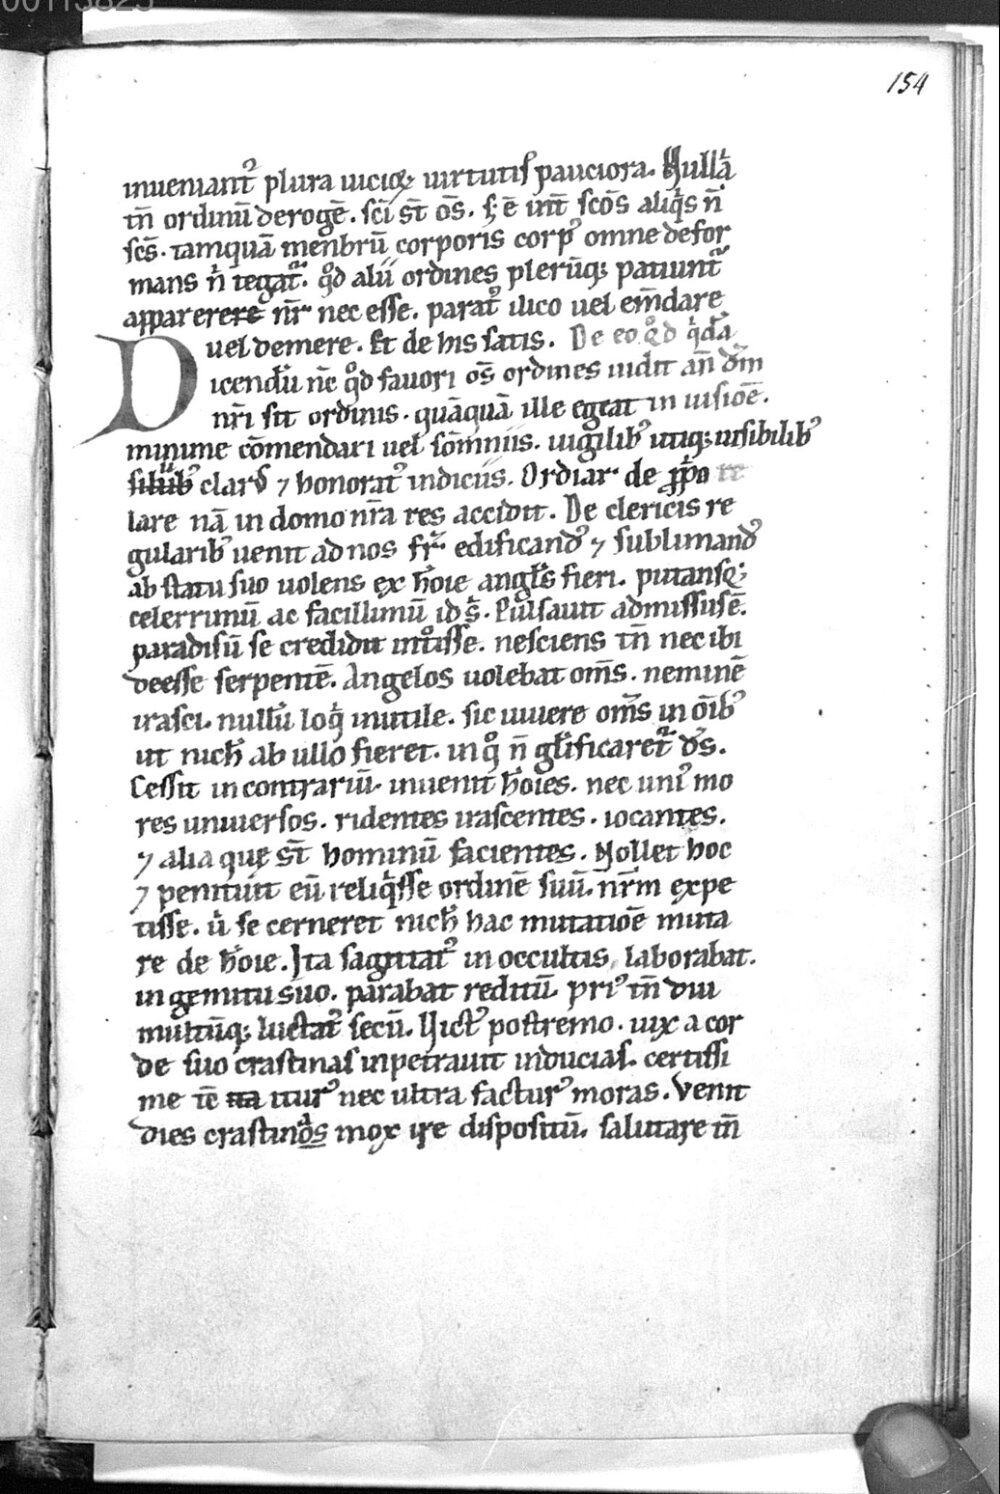 00113825
154
inueniant᷒ plura uicioꝝ uirtutis pauciora. Nullā
tn̄ ordinū derogē. sci s̄t os̄. s; ē int̄ scōs aliqͥs n̄
scs̄. tamquā menbrū corporis corp᷒ omne defor
mans n̄ tegat᷒. qͦd alii ordines plerūq; patiunt᷒
apparere nr̄ nec esse. parat᷒ ilico uel em̄dare
uel demere. Et de his satis. De eo qͦd qͥdā
Dicendū nc̄ qͦd fauori os̄ ordines uidit an̄ dm̄
nr̄i sit ordinis. quāquā ille egeat in uisiōe.
minime cōmendari uel sōmniis. uigilib᷒ utiq; uisibilib᷒
clar᷒ ⁊ honorat᷒ indiciis. Ordiar de
lare nā in domo nr̄a res accidit. De clericis re
gularib᷒ uenit ad nos fr̄ edificand᷒ ⁊ sublimand᷒
ab statu suo uolens ex hoīe angl̄s fieri. putansq;
celerrimū ac facillimū id Pulsauit admissusē.
paradisū se credidit intͦisse. nesciens tn̄ nec ibi
deesse serpentē. Angelos uolebat oms̄. neminē
irasci. nullū loqͥ inutile. sic uiuere oms̄ in oīb᷒
ut nich̄ ab ullo fieret. in qͦ n̄ gl̄ificaret᷒ ds̄.
Cessit in contrariū. inuenit hoīes. nec uni᷒ mo
res uniuersos. ridentes irascentes. iocantes.
⁊ alia quę s̄t hominū facientes. Nollet hoc
⁊ penituit eū reliqͥsse ordinē suū. nr̄m expe
tisse. uͥ se cerneret nich̄ hac mutatiōe muta
re de hoīe. Ita sagittat᷒ in occultis laborabat.
in gemitu suo. parabat reditū. pri᷒ tn̄ diu
multūq; luctat᷒ secū. Vict᷒ postremo. uix a cor
de suo crastinas inpetrauit inducias. certissi
me iē itur᷒ nec ultra factur᷒ moras. Venit
dies crastin᷒ mox ire dispositū. salutare tn̄